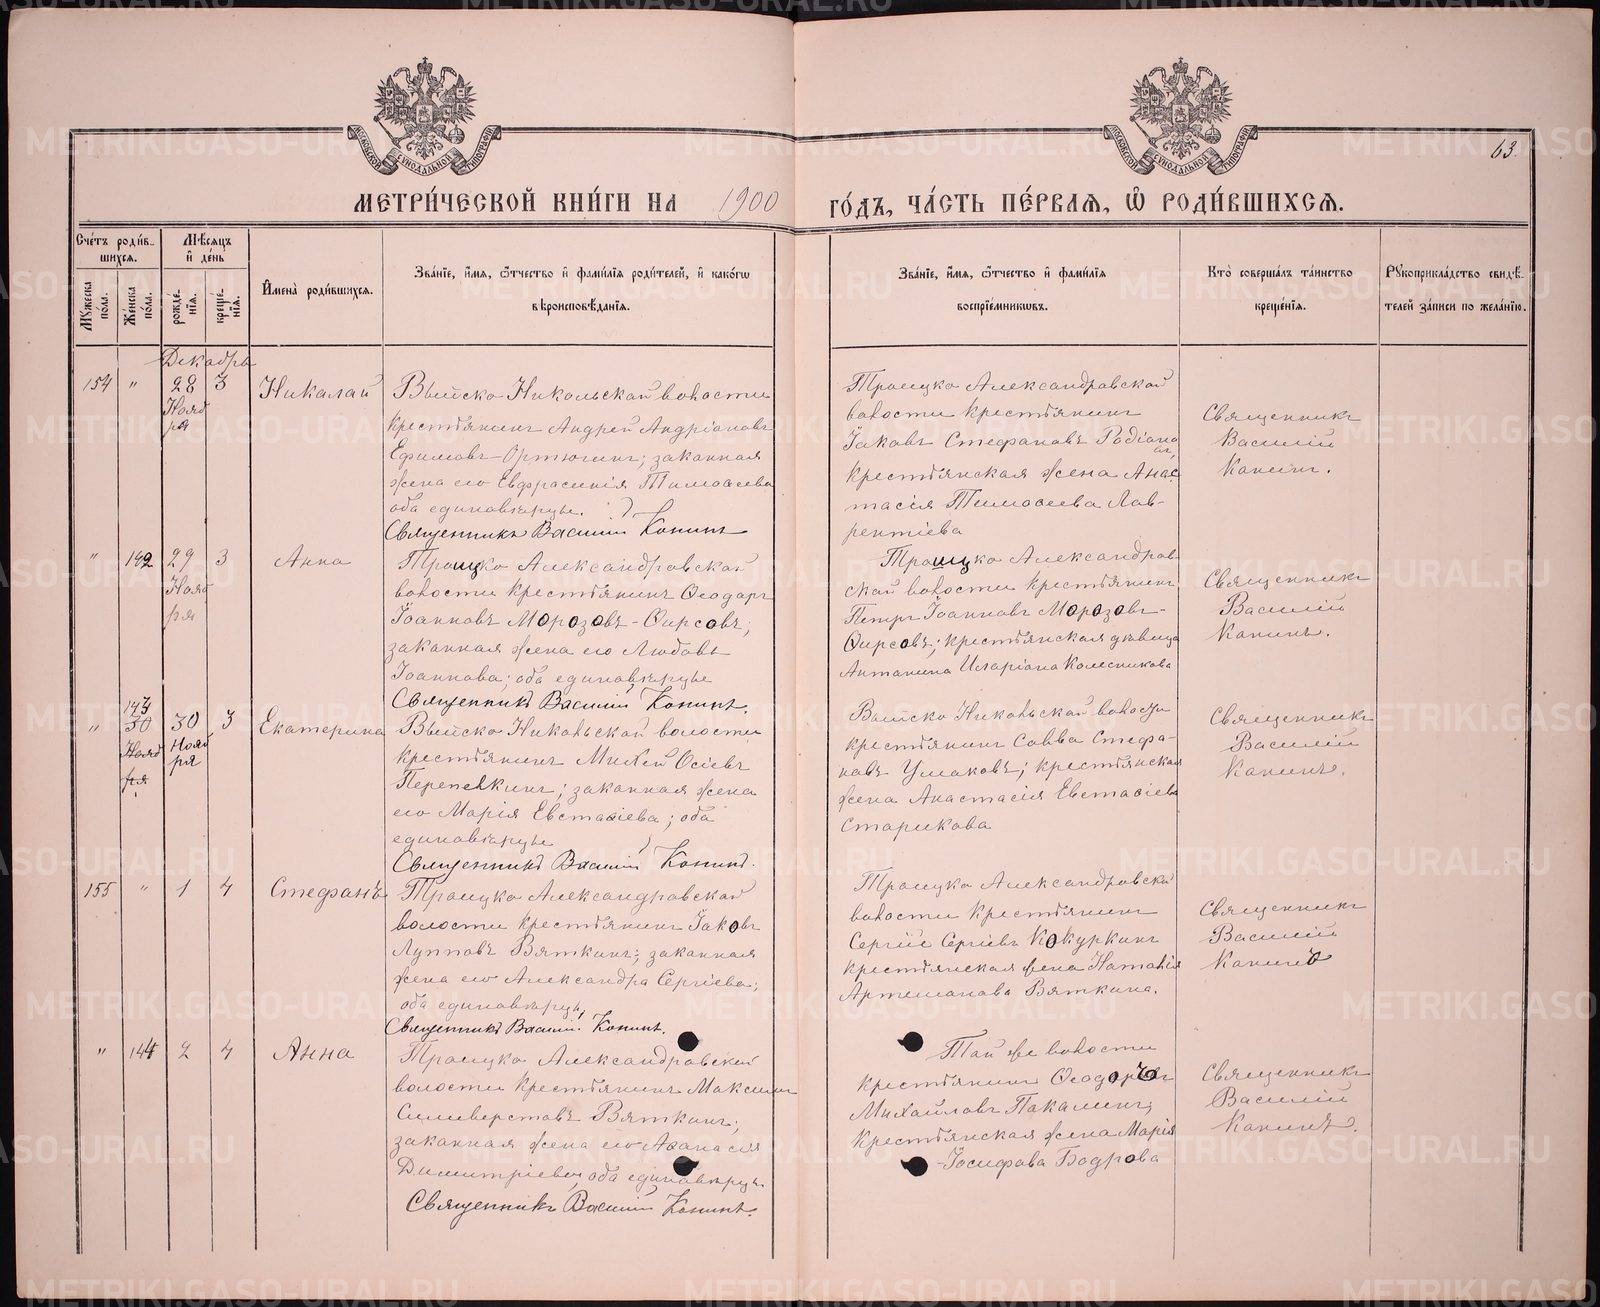 63.
МЕТРИ́ЧЕСКОЙ КНИ́ГИ НА 1900 ГО́ДЪ, ЧА́СТЬ ПЕ́РВАЯ, Ѽ РОДИ́ВШИХСЯ.
Сче́тъ роди́вшихся.
Му́жеска пола.
Же́нска по́ла.
Мѣ́сяцъ и́ де́нь
рожде́нїя.
креще́нїя.
И́мена̀ роди́вшихся.
Зва́нїе, и́мя, ѻ҆́тчество и҆ фами́лїя роди́телей, и҆ како́гѡ
вѣроисповѣ́данїя.
Зва́нїе, и́мя, ѻ҆́тчество и҆ фами́лїя
воспрїе́мниковъ.
Кто̀ соверша́лъ та́инство
креще́нїя.
Рꙋкоприкла́дство свидѣ́-
телей за́писи по жела́нїю.
Декабрь
154 " 28 Ноября 3 Николай
Выйско Никольской волости
крестьянинъ Андрей Андріановъ
Ефимовъ-Ортюгинъ; законная
жена его Евфросинія Тимоѳеева
оба единовѣрцы.
Священникъ Василій Конинъ
Троицко Александровской
волости крестьянинъ
Іаковъ Стефановъ
крестьянская жена Анас-
тасія Тимоѳеева Лав-
рентіева
Священникъ
Василій
Конинъ.
" 142 29 Ноября 3 Анна
Троицко Александровской
волости крестьянинъ Ѳеодоръ
Іоанновъ Морозовъ-Ѳирсовъ;
законная жена его Любовь
Іоаннова; оба единовѣрцы
Священникъ Василій Конинъ.
Троицко Александров-
ской волости крестьянинъ
Петръ Іоанновъ Морозовъ-
Ѳирсовъ; крестьянская дѣвица
Антонина Иларіона Колесникова
Священникъ
Василій
Конинъ.
" 143 30 Ноября 30 Ноября 3 Екатерина
Выйско Никольской волости
крестьянинъ Михей Осіевъ
Перепелкинъ; законная жена
его Марія Евстаѳіева; оба
единовѣрцы
Священникъ Василій Конинъ.
Выйско Никольской волости
крестьянинъ Савва Стефа-
новъ Ушаковъ; крестьянская
жена Анастасія Евстаѳіева
Старикова
Священникъ
Василій
Конинъ.
155 " 1 4 Стефанъ
Троицко Александровской
волости крестьянинъ Іаковъ
Лупповъ Вяткинъ; законная
жена его Александра Сергіева;
оба единовѣрцы
Священникъ Василій Конинъ.
Троицко Александровской
волости крестьянинъ
Сергій Сергіевъ Кокуркинъ
крестьянская жена Наталія
Артемонова Вяткина.
Священникъ
Василій
Конинъ
" 144 2 4 Анна
Троицко Александровской
волости крестьянинъ Максимъ
Селиверстовъ Вяткинъ;
законная жена его Аѳанасія
Димитріева, оба единовѣрцы.
Священникъ Василій Конинъ.
Той же волости
крестьянинъ Ѳеодоръ
Михайловъ Пакалинъ;
крестьянская жена Марія
Іосифова Бодрова
Священникъ
Василій
Конинъ.
METRIKI.GASO-URAL.RU